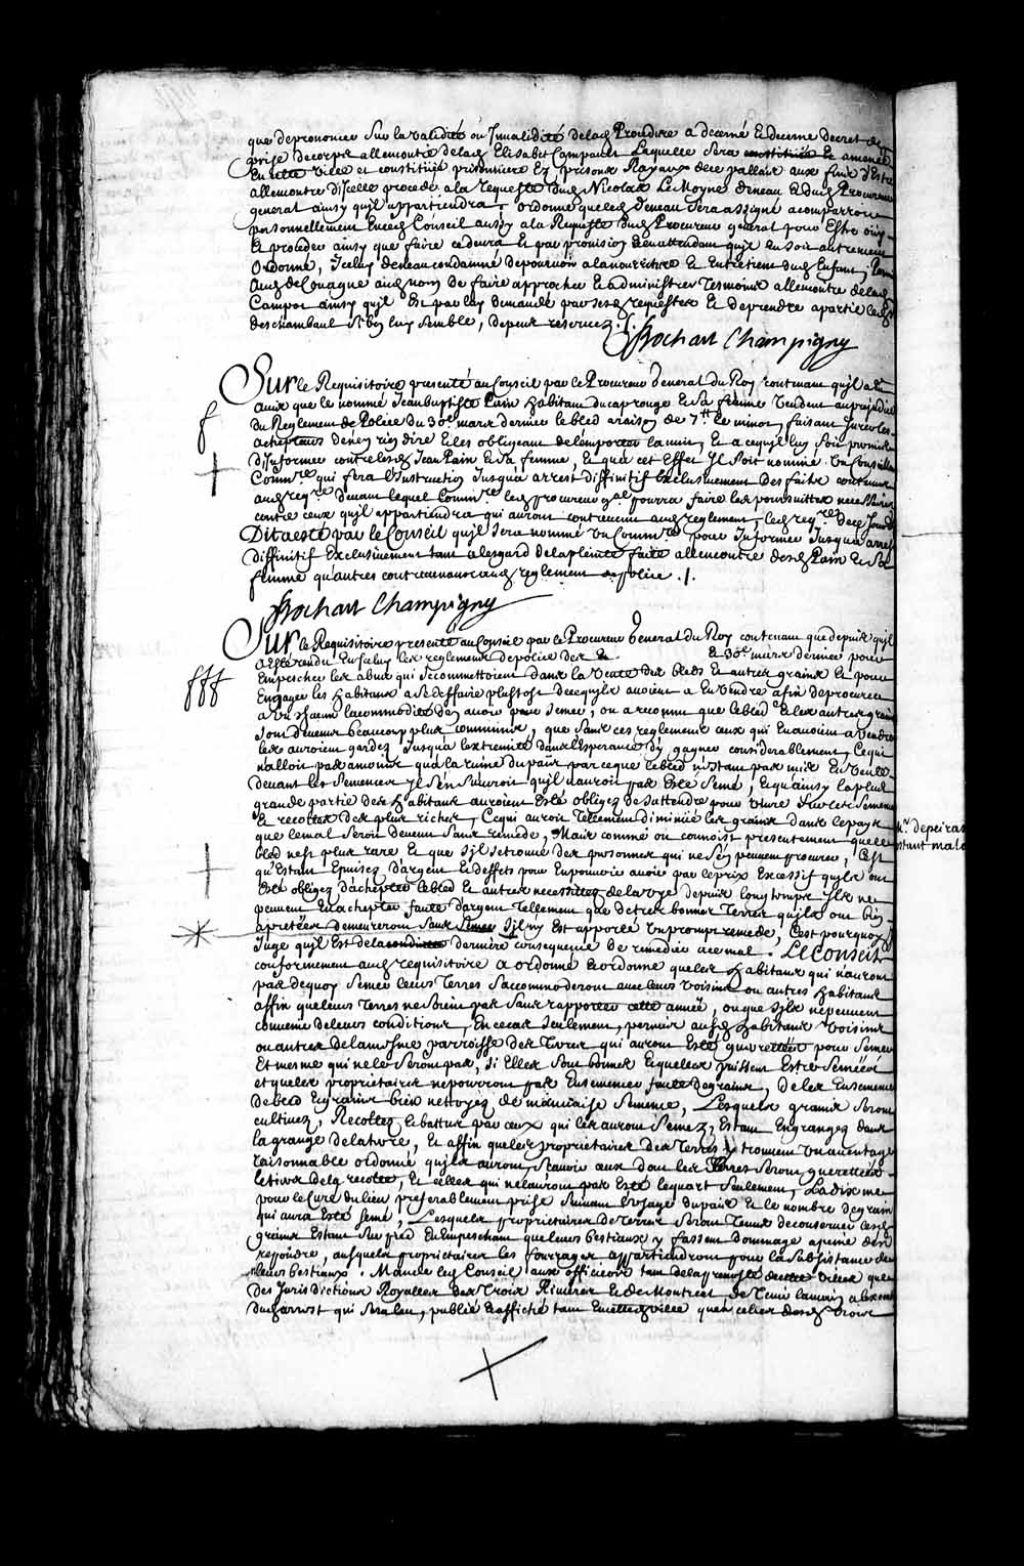 que de prononcer sur la validité ou Invalidité delad. Procedure a decerné & decerne decret de
prise de corps allencontre delad. Elisabet Campault Laquelle sera constituée & amenée
En cette ville et constituée prisonniere Ez prisons Royaux de ce pallais aux fins d'Estre
allencontre d'Icelle procedé a la requeste dud. Nicolas Le Moyne deneau & dud. Procureur
general ainsy qu'il appartiendra, ordonne que led. deneau sera assigné a comparroir
personnellement Enced. Conseil aussy a la Requeste dud. Procureur general pour Estre ouy
& proceder ainsy que faire ce devra & par provision & enattendant qu'il en soit autrement
Ordonné, Iceluy deneau condamné de pourvoir a la nouriture & Entretien dud. Enfant,
Aud. de Louvigné aud. nom de faire approcher & administrer Tesmoins allencontre delad.
Campot ainsy qu'il Est par luy demandé par ses requestes & de prendre a partie led.
deschambault sy bon luy semble, depens reservez ./.
Bochart Champigny
Sur le Requisitoire presenté au Conseil par le Procureur General du Roy contenant qu'il a eu
avis que le nommé Jean baptiste Pain habitant du cap rouge & sa femme vendent au prejudice
du Reglement de Police du 30e mars dernier le bled a raison de 7tt le minot, faisant Jurer les
achepteurs de n'en rien dire & les obligeant de l'emporter la nuit, & a ce qu'il luy soit permis
d'Informer contre lesd. Jean Pain & sa femme, & qu'a cet Effet Il soit nommé Un Conseiller
Commre qui fera l'Instruction Jusqu'a arrest diffinitif Exclusivement des faits contenus
aud. reqre, devant lequel Commre led. procureur gnal pourra faire les poursuittes necessaires
contre ceux qu'il appartiendra qui auront contrevenu aud. reglement, led. reqre de ce Jourd'huy
Dit a esté par le Conseil qu'il sera nommé Un Commre pour Informer Jusqu'a arrest
diffinitif Exclusivement tant a l'esgard de la plainte faite allencontre desd. Pain & sa
femme qu'autres contrevenans aud. reglement de police ./.
Bochart Champigny
Sur le Requisitoire presenté au Conseil par le Procureur General du Roy contenant que depuis qu'il
a Esté rendu En Iceluy les reglemens de police des & & 30e mars dernier pour
Empescher les abus qui se commettoient dans la Vente des bleds & autres grains & pour
Engager les habitans a se deffaire plustost de ce qu'ils avoient a En vendre afin de procurer
a Un chacun la commodité d'en avoir pour semer, on a reconnu que le bled & les autres grains
sont devenus beaucoup plus communs, que sans ces reglemens ceux qui En avoient a vendre
les auroient gardez Jusqu'a l'extremité dans l'Esperance d'y gagner considerablement, Ce qui
n'alloit pas a moins qu'a la ruine du païs par ce que le bled n'estant pas mis En vente
devant les semences Il s'en suivroit qu'il n'auroit pas Esté semé, & qu'ainsy la plus
grande partie des habitans auroient Esté obligez de s'attendre pour vivre sur les semences
& recoltes des plus riches, Ce qui auroit Tellement diminué les grains dans le pays
que le mal seroit devenu sans remede, Mais comme on connoist presentement que le
bled n'est plus rare & que s'il se trouve des personnes qui ne s'en peuvent procurer, C'est
qu'Estant Epuisez d'argent & d'effets pour En pouvoir avoir par le prix Excessif qu'ils ont
Esté obligez d'achepter le bled & autres necessitez de la vye depuis longtemps Ils ne
peuvent En achepter faute d'argent Tellement que de tres bonnes Terres qu'ils ont bien
aprestées demeureront sans semer s'il n'y Est apporté Un prompt remede, C'est pourquoy Il
Juge qu'il Est de la derniere consequence de remedier a ce mal. Le Conseil
conformement aud. requisitoire a ordonné & ordonne que les habitans qui n'auront
pas dequoy semer leurs Terres s'accommoderont avec leurs voisins ou autres habitans
affin que leurs Terres ne soient pas sans rapporter cette année, ou que s'ils ne peuvent
convenir de leurs conditions, En ce cas seulement, permis ausd. habitans voisins
ou autres de la mesme parroisse des Terres qui auront Esté guerettées pour semer
Et mesme qui ne le seront pas, si Elles sont bonnes & qu'elles puissent Estre semées
et que les proprietaires ne pourront pas Ensemencer faute de grains, de les Ensemencer
de bled & grains bien nettoyez de mauvaise semence, Lesquels grains seront
cultivez, Recoltez & battus par ceux qui les auront semez, Estant Engrangez dans
la grange de la terre, & affin que les proprietaires des Terres y trouvent Un avantage
raisonnable ordonné qu'ils auront, sçavoir ceux dont les Terres seront guerettées
le tiers de la recolte, & celles qui ne l'auront pas Esté le quart seulement, La dixme
pour le Curé du lieu preferablement prise suivant l'usage du païs & le nombre de grain
qui aura Esté semé, Lesquels proprietaires de Terres seront Tenus de conserver lesd.
grains Estant sur pied & d'Empescher que leurs bestiaux y fassent dommage a peine d'en
respondre, ausquels proprietaires les fourages appartiendront pour la subsistance de
leurs bestiaux. Mande led. Conseil aux officiers tant de la prevosté de cette ville que
des Jurisdictions Royalles des Trois Rivieres & de Montreal, de Tenir la main a l'execution
du pnt arrest qui sera leu, publié & affiché tant En cette ville qu'en celles desd. trois
Mr. depeiras
estant malade